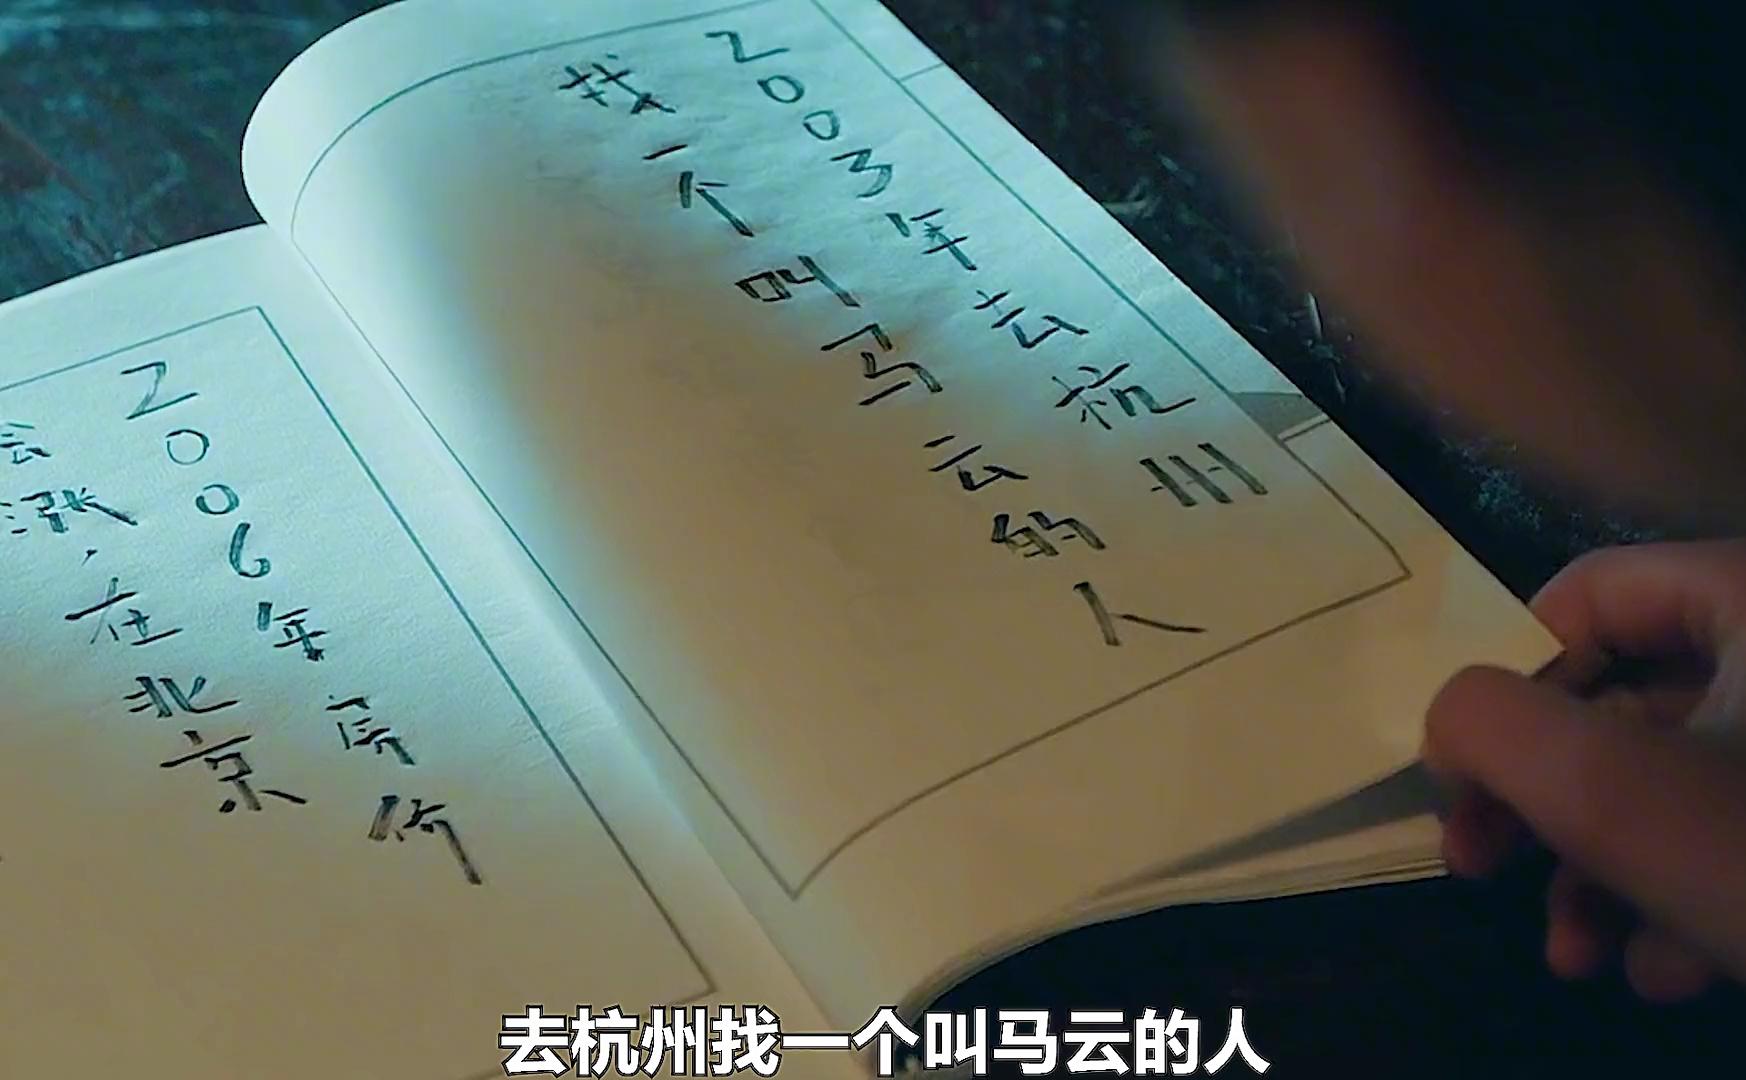 2003年去杭州
找一个叫马云的人
2006年房价
会涨，在北京
去杭州找一个叫马云的人